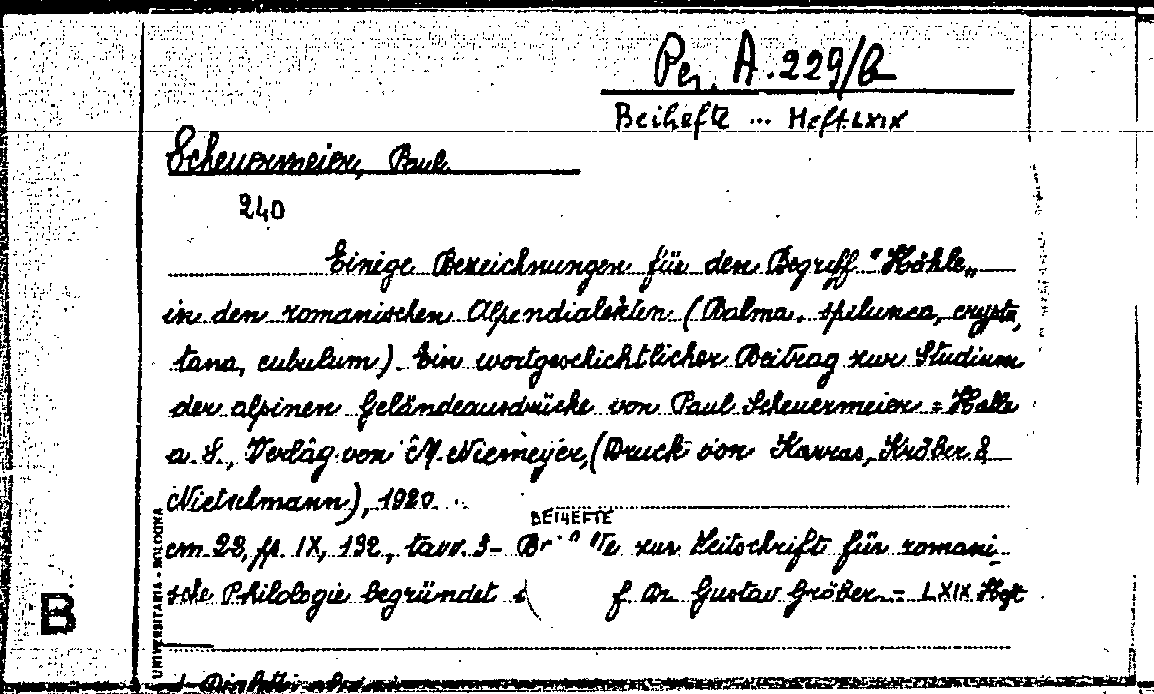 Per. A. 229/B
Beihefte ... Heft. LXIX
Scheuermeier, Paul
240
Einige Bezeichnungen für den Begriff "Höhle„
in den romanischen Alpendialekten (Balma, spelunca, crypta,
tana, cubulum). Ein wortgeschichtlicher Beitrag zur Studium
der alpinen Geländeausdrücke von Paul Scheuermeier = Halle
a. S., Verlag von M. Niemeyer, (Druck von Karras, Kröber &
Nietschmann), 1920
BEIHEFTE
cm. 23, pp. IX, 132, tavv. 3 - zur Zeitschrift für romani-
sche Philologie begründet Dr. Gustav Gröber. - LXIX Heft
B
UNIVERSITARIA - BOLOGNA
1. Dialetti